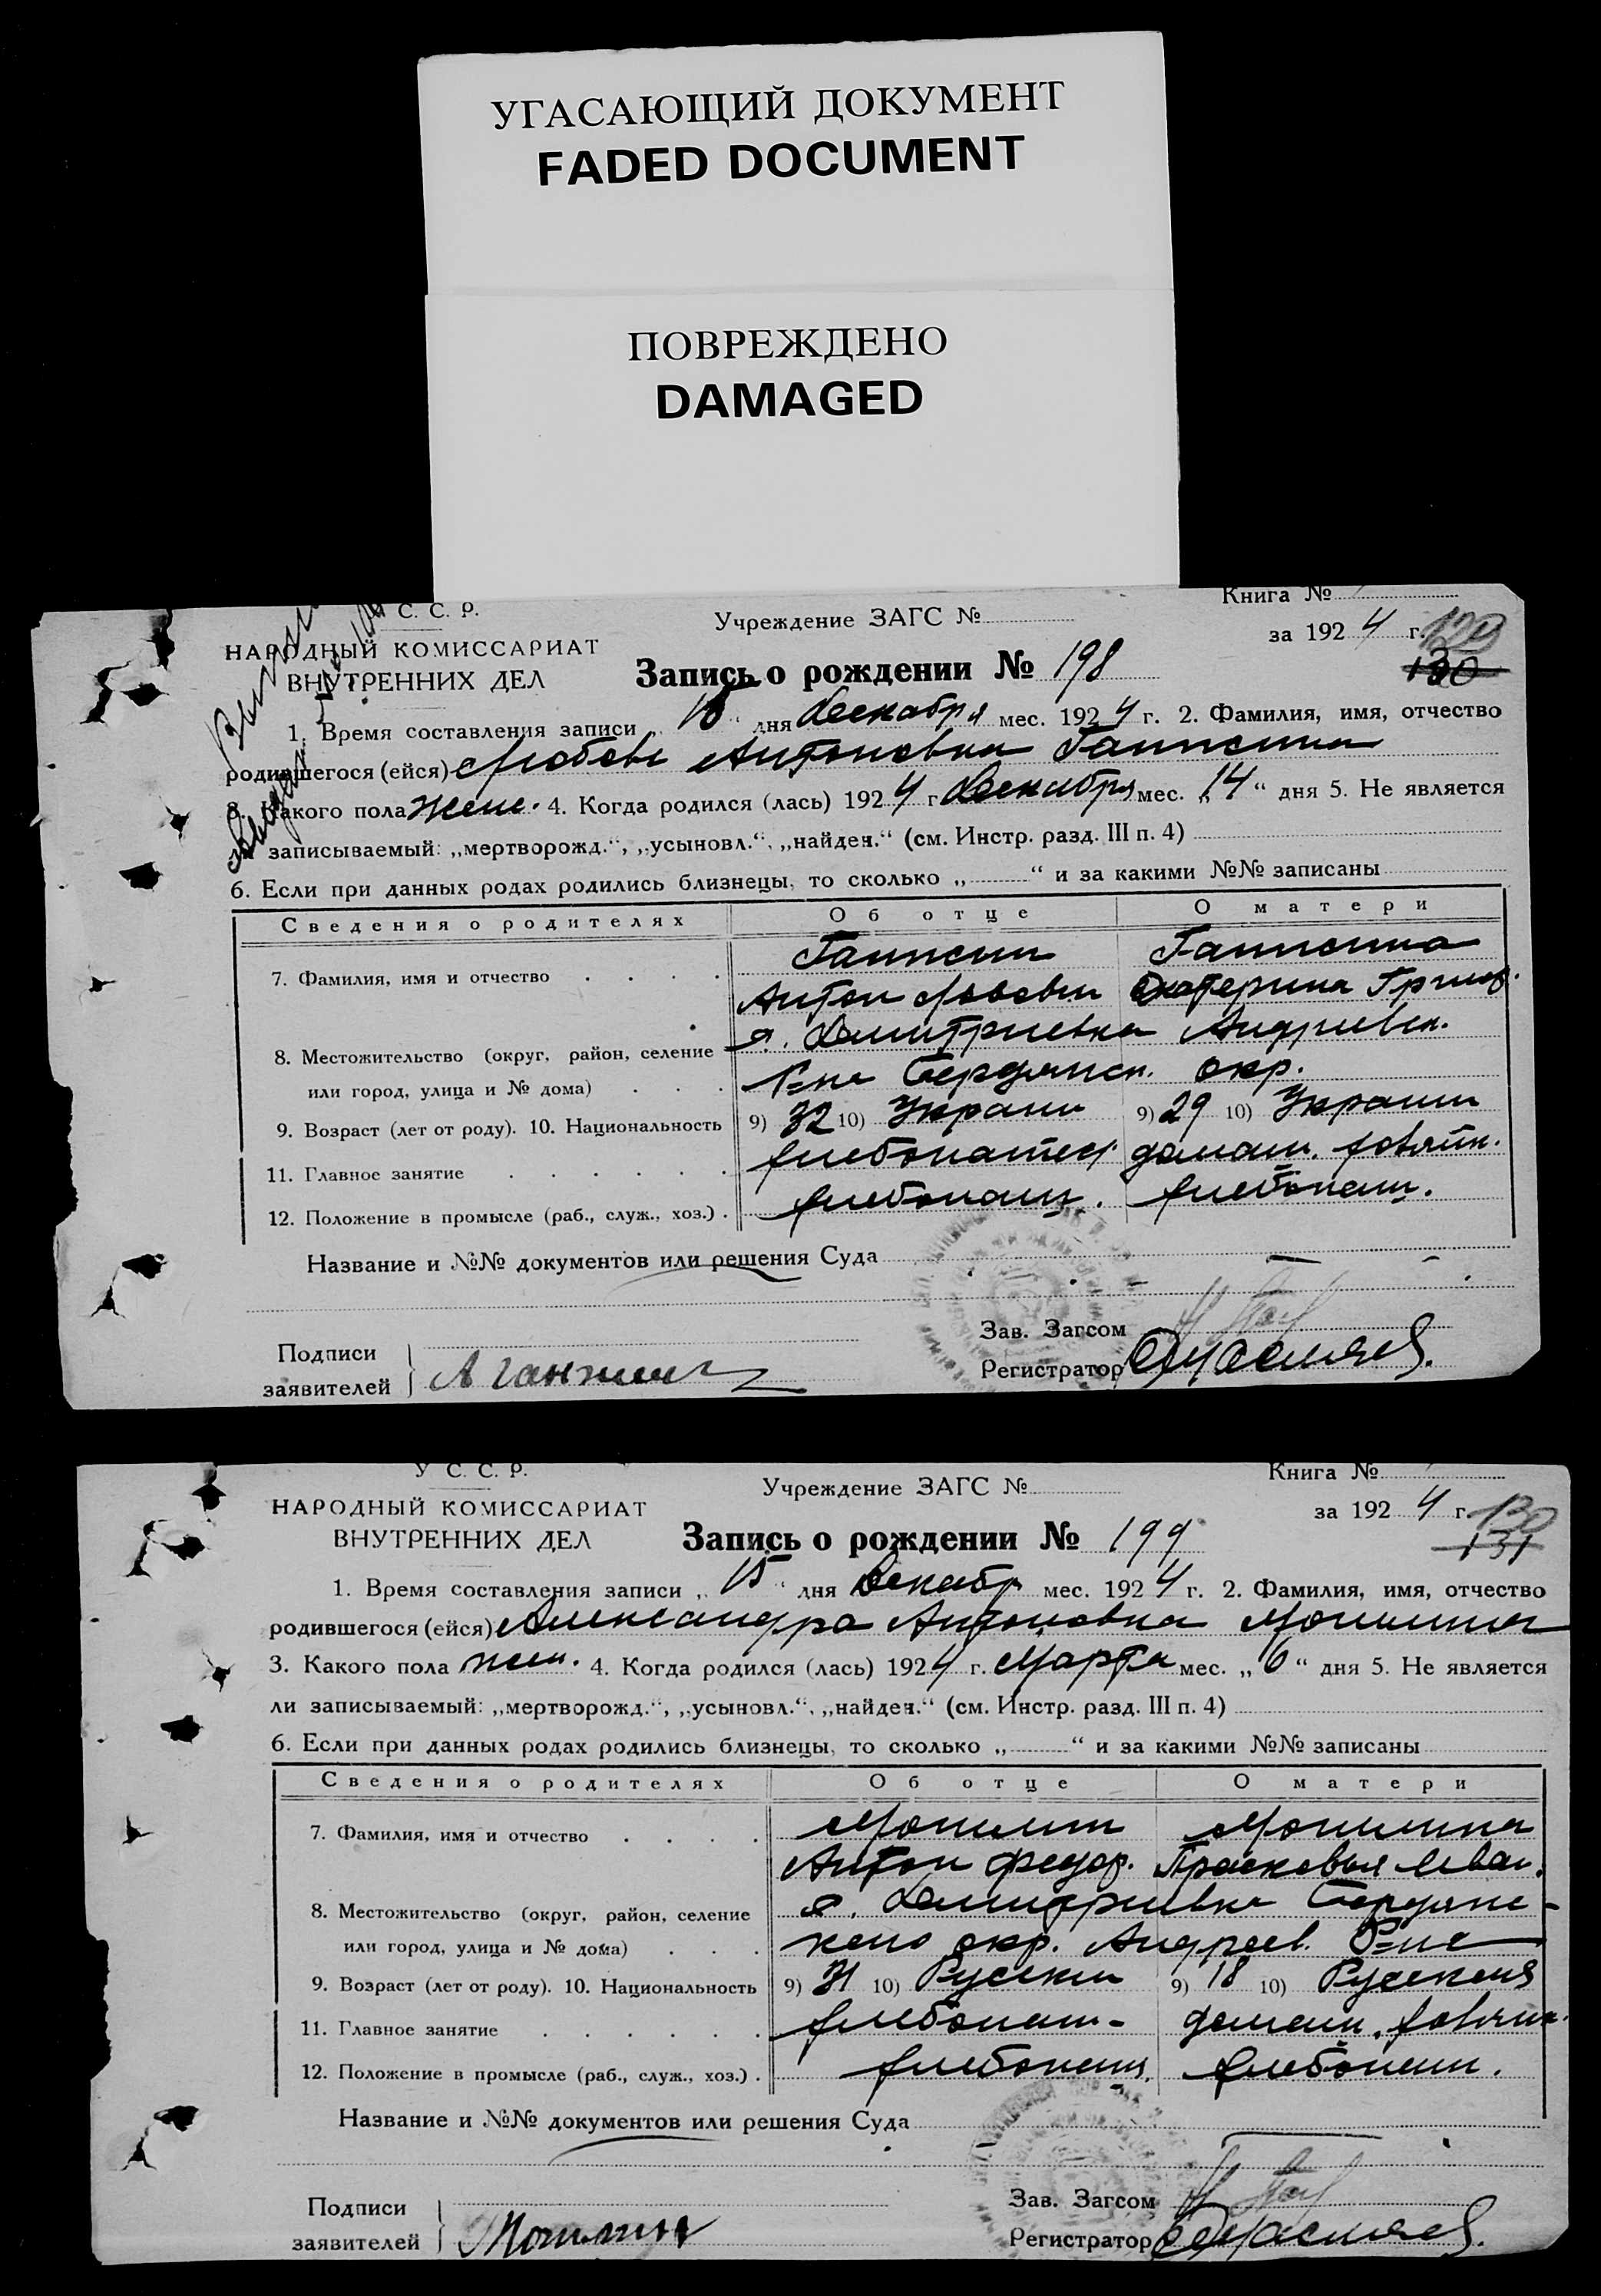 УГАСАЮЩИЙ ДОКУМЕНТ
FADED DOCUMENT
ПОВРЕЖДЕНО
DAMAGED
С. С. Р.
НАРОДНЫЙ КОМИССАРИАТ
ВНУТРЕННИХ ДЕЛ
Учреждение ЗАГС №
Книга №
за 1924 г.
129
130
Запись о рождении № 198
1. Время составления записи „15“ дня Декабря мес. 1924 г. 2. Фамилия, имя, отчество
родившегося (ейся) Любовь Антоновна Ганжина
3. Какого пола жен. 4. Когда родился (лась) 1924 г. Декабря мес. „14“ дня 5. Не является
ли записываемый: „мертворожд.“, „усыновл.“, „найден.“ (см. Инстр. разд. III п. 4)
6. Если при данных родах родились близнецы, то сколько „ “ и за какими №№ записаны
Сведения о родителях Об отце О матери
7. Фамилия, имя и отчество Ганжин Ганжина
Антон Екатерина Григ.
8. Местожительство (округ, район, селение с. Дмитриевка Андриевск.
или город, улица и № дома) Р-на Бердянск. окр.
9. Возраст (лет от роду). 10. Национальность 9) 32 10) Украин 9) 29 10) Украин
11. Главное занятие хлебопашец домаш. хозяйк.
12. Положение в промысле (раб., служ., хоз.) хлебопаш. хлебопаш.
Название и №№ документов или решения Суда
Зав. Загсом
Подписи
заявителей А Ганжин
Регистратор
У С. С. Р.
НАРОДНЫЙ КОМИССАРИАТ
ВНУТРЕННИХ ДЕЛ
Учреждение ЗАГС №
Книга №
за 1924 г.
130
131
Запись о рождении № 199
1. Время составления записи „15“ дня Декабр мес. 1924 г. 2. Фамилия, имя, отчество
родившегося (ейся) Александра Антоновна
3. Какого пола жен. 4. Когда родился (лась) 1924 г. Марта мес. „6“ дня 5. Не является
ли записываемый: „мертворожд.“, „усыновл.“, „найден.“ (см. Инстр. разд. III п. 4)
6. Если при данных родах родились близнецы, то сколько „ “ и за какими №№ записаны
Сведения о родителях Об отце О матери
7. Фамилия, имя и отчество
Антон Федор. Прасковья Иван.
8. Местожительство (округ, район, селение с. Дмитриевка Бердянс-
или город, улица и № дома) кого окр. Андреев. Р-на
9. Возраст (лет от роду). 10. Национальность 9) 31 10) Русский 9) 18 10) Русская
11. Главное занятие хлебопаш- домаш. хозяйк.
12. Положение в промысле (раб., служ., хоз.) хлебопаш. хлебопаш.
Название и №№ документов или решения Суда
Зав. Загсом
Подписи
заявителей
Регистратор